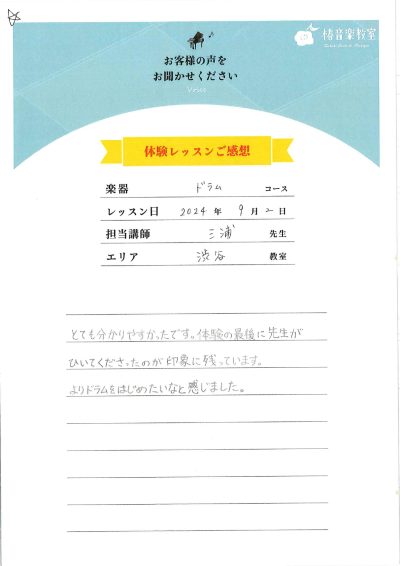 椿音楽教室
お客様の声を
お聞かせください
Voice
体験レッスンご感想
楽器 ドラム コース
レッスン日 2024 年 9 月 2 日
担当講師 三浦 先生
エリア 渋谷 教室
とても分かりやすかったです。体験の最後に先生が
ひいてくださったのが印象に残っています。
よりドラムをはじめたいなと感じました。